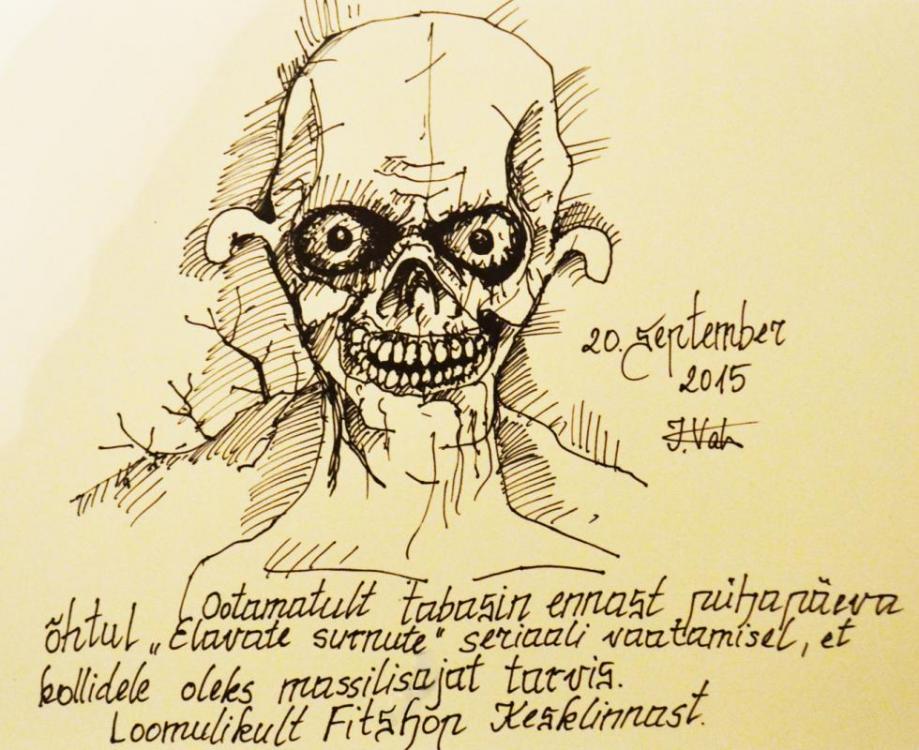 20. September
2015
J. Vah
Ootamatult tabasin ennast pühapäeva
õhtul „Elavate surnute“ seriaali vaatamisel, et
kollidele oleks massilisajat tarvis.
Loomulikult FitShop Kesklinnast.